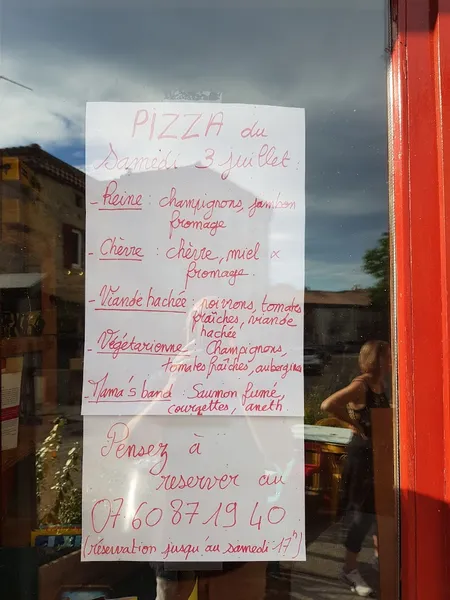 PIZZA du
Samedi 3 juillet :
- Reine : champignons, jambon
fromage
- Chèvre : chèvre, miel &
fromage.
- Viande hachée : poivrons, tomates
fraîches, viande
hachée
- Végétarienne : Champignons,
tomates fraîches, aubergines
- Mama's band : Saumon fumé,
courgettes, aneth.
Pensez à
reserver au
07 60 87 19 40
(réservation jusqu'au samedi 17h)